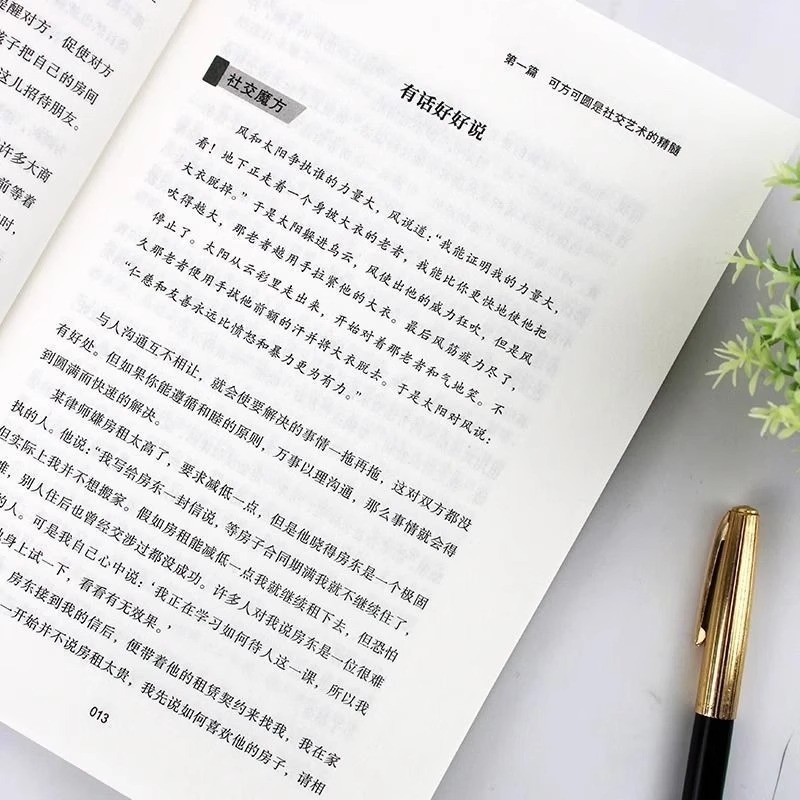 提醒对方，促使对方
孩子把自己的房间
这儿招待朋友。
许多大商
前等着
时，
第一篇 可方可圆是社交艺术的精髓
有话好好说
社交魔方
风和太阳争执谁的力量大，风说道：“我能证明我的力量大，
看！地下正走着一个身披大衣的老者，我能比你更快地使他把
大衣脱掉。”于是太阳躲进乌云，风使出他的威力狂吹，但是风
吹得越大，那老者越用手拉紧他的大衣。最后风筋疲力尽了，
停止了。太阳从云彩里走出来，开始对着那老者和气地笑。不
久那老者便用手拭他前额的汗并将大衣脱去。于是太阳对风说：
“仁慈和友善永远比愤怒和暴力更为有力。”
与人沟通互不相让，就会使要解决的事情一拖再拖，这对双方都没
有好处。但如果你能遵循和睦的原则，万事以理沟通，那么事情就会得
到圆满而快速的解决。
某律师嫌房租太高了，要求减低一点，但是他晓得房东是一个极固
执的人。他说：“我写给房东一封信说，等房子合同期满我就不继续住了，
但实际上我并不想搬家。假如房租能减低一点我就继续租下去，但恐怕
难，别人住后也曾经交涉过都没成功。许多人对我说房东是一位很难
的人。可是我自己心中说：‘我正在学习如何待人这一课，所以我
他身上试一下，看看有无效果。’
房东接到我的信后，便带着他的租赁契约来找我，我在家
一开始并不说房租太贵，我先说如何喜欢他的房子，请相
013